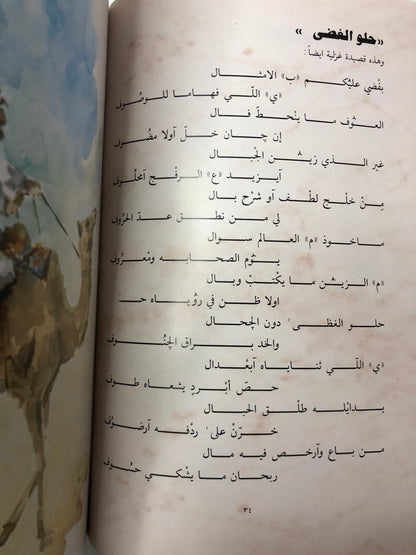 «حلو الغضى»
وهذه قصيدة غزلية ايضاً:
بقْضي عليُكم «ب» الامثال
«ي» اللي فهاما للوصُوف
العوْف ما ينْحطّ فال
إن چان خلّ آولا مضُوف
غير الذي زيشن الجْبال
آيزيد «ع» الرفْج آمحلُوف
مِنْ خلْج لطْف آو شرْح بال
لي من نطق عدّ الحرُوف
ماخوذ «م» العالم سوال
يثوم الصحابه ومْعروف
«م» الزيشن ما يكْتبْ وبال
اولا ظن في رؤياه
حلو الغظى دون الجحال
والخد براق الجنُوف
«ي» اللي ثناياه آبْعدال
حصّ أبْردٍ يشعاه طوف
يدايْله طلْق الحبال
خرّنْ على ردْفه آرضُوف
من باع وآرخص فيه مال
ربحان ما يشْكي حسُوف
٣٤